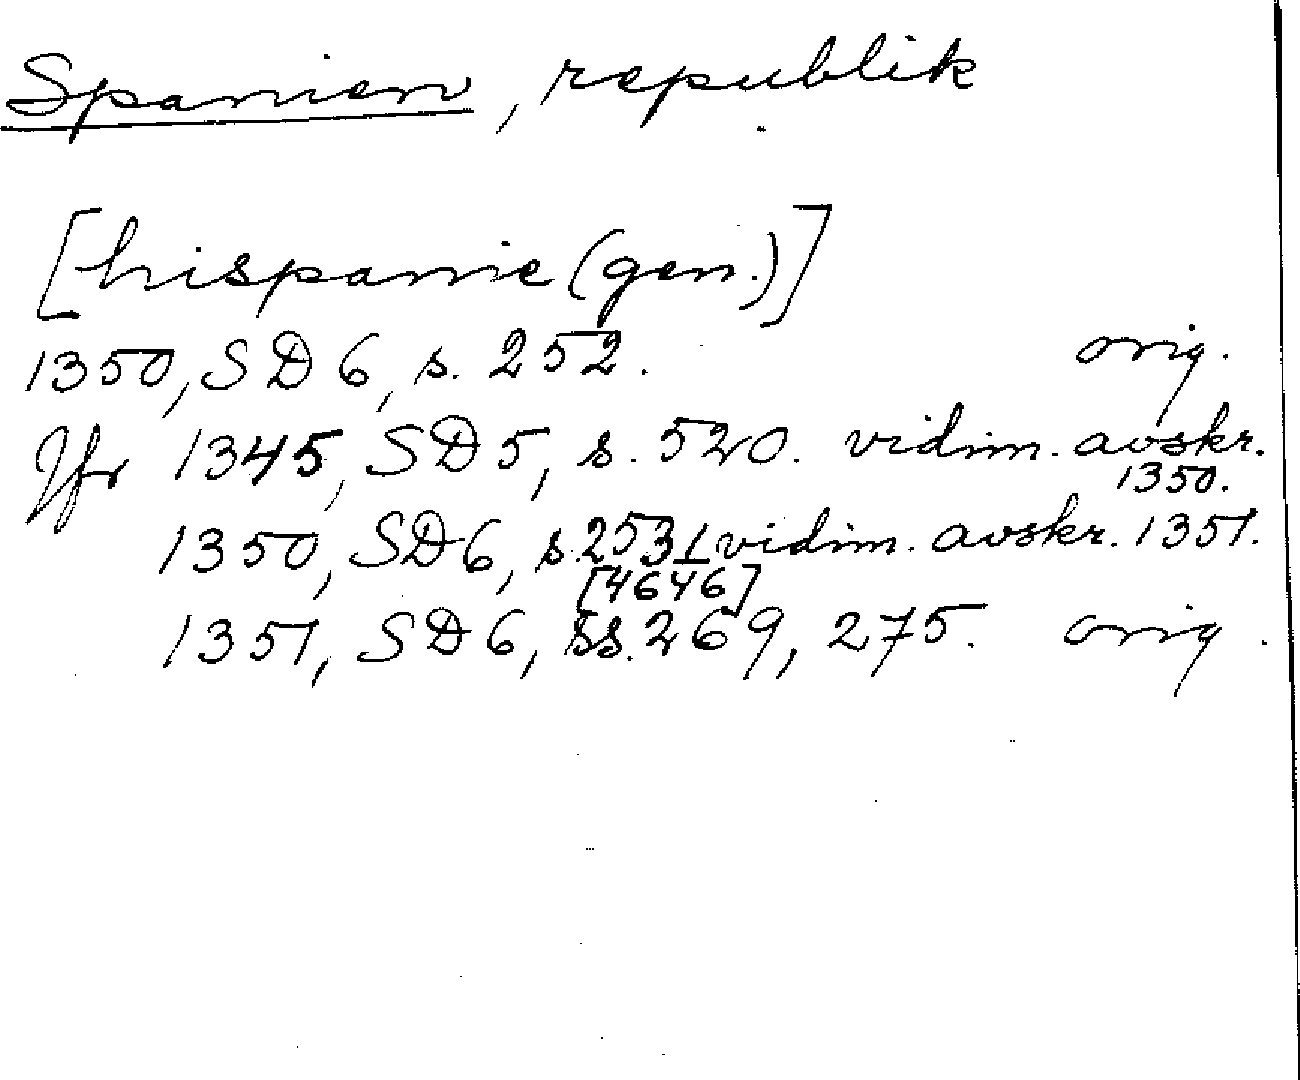 Spanien, republik
[hispanie (gen.)]
1350, SD 6, s. 252. orig.
Jfr 1345, SD 5, s. 520. vidim. avskr. 1350.
1350, SD 6, s. 253 ⊥ vidim. avskr. 1351.
[4646]
1351, SD 6, ss. 269, 275. orig.